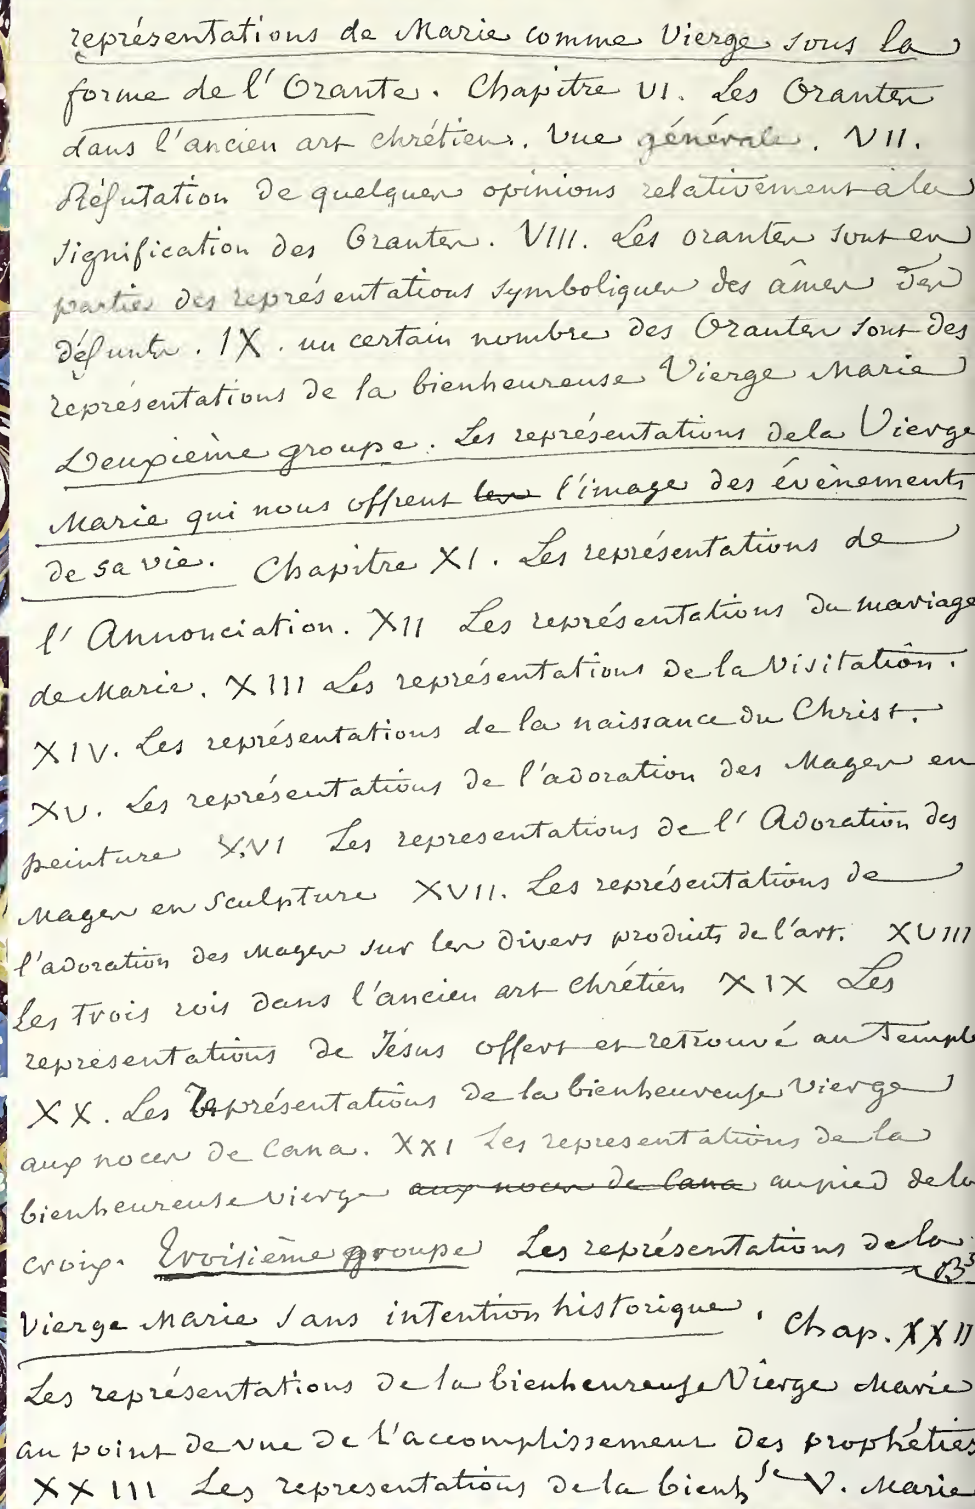 représentations de Marie comme Vierge sous la
forme de l'Orante. Chapitre VI. Les Orantes
dans l'ancien art chrétien. Vue générale. VII.
Réfutation de quelques opinions relativement à la
signification des Orantes. VIII. Les orantes sont en
parties des représentations symboliques des âmes des
défunts. IX. un certain nombre des Orantes sont des
représentations de la bienheureuse Vierge Marie
Deuxième groupe. Les représentations de la Vierge
Marie qui nous offrent les l'image des évènements
de sa vie. Chapitre XI. Les représentations de
l'Annonciation. XII Les représentations du mariage
de Marie. XIII Les représentations de la Visitation.
XIV. Les représentations de la naissance du Christ.
XV. Les représentations de l'adoration des Mages en
peinture XVI Les representations de l'Adoration des
Mages en Sculpture XVII. Les représentations de
l'adoration des Mages sur les divers produits de l'art. XVIII
Les trois rois dans l'ancien art chrétien XIX Les
représentations de Jésus offert et retrouvé au Temple
XX. Les Représentations de la bienheureuse Vierge
aux noces de Cana. XXI Les representations de la
bienheureuse Vierge aux noces de Cana au pied de la
croix. Troisième groupe Les représentations de la
Vierge Marie sans intention historique. Chap. XXII
Les représentations de la bienheureuse Vierge Marie
au point de vue de l'accomplissement des prophéties
XXIII Les representations de la bienhse V. Marie